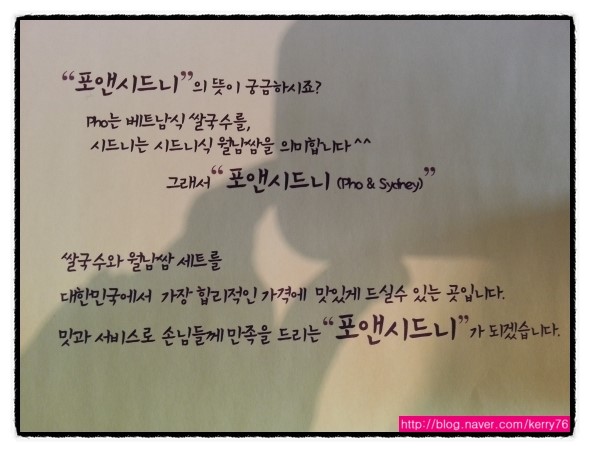 “포앤시드니”의 뜻이 궁금하시죠?
Pho는 베트남식 쌀국수를,
시드니는 시드니식 월남쌈을 의미합니다^^
그래서 “포앤시드니 (Pho & Sydney)”
쌀국수와 월남쌈 세트를
대한민국에서 가장 합리적인 가격에 맛있게 드실수 있는 곳입니다.
맛과 서비스로 손님들께 만족을 드리는 “포앤시드니”가 되겠습니다.
http://blog.naver.com/kerry76